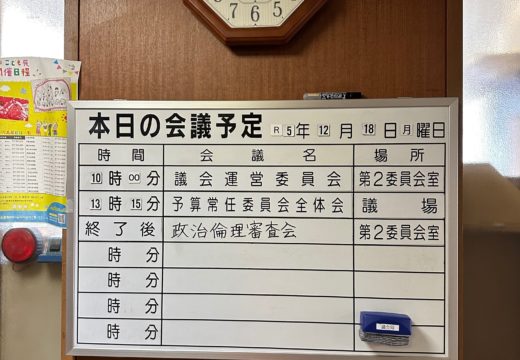 7 6 5
こども展
開催日程
本日の会議予定 R5年12月18日月曜日
時間 会議名 場所
10時00分 議会運営委員会 第2委員会室
13時15分 予算常任委員会全体会 議場
終了後 政治倫理審査会 第2委員会室
時 分
時 分
時 分
時 分